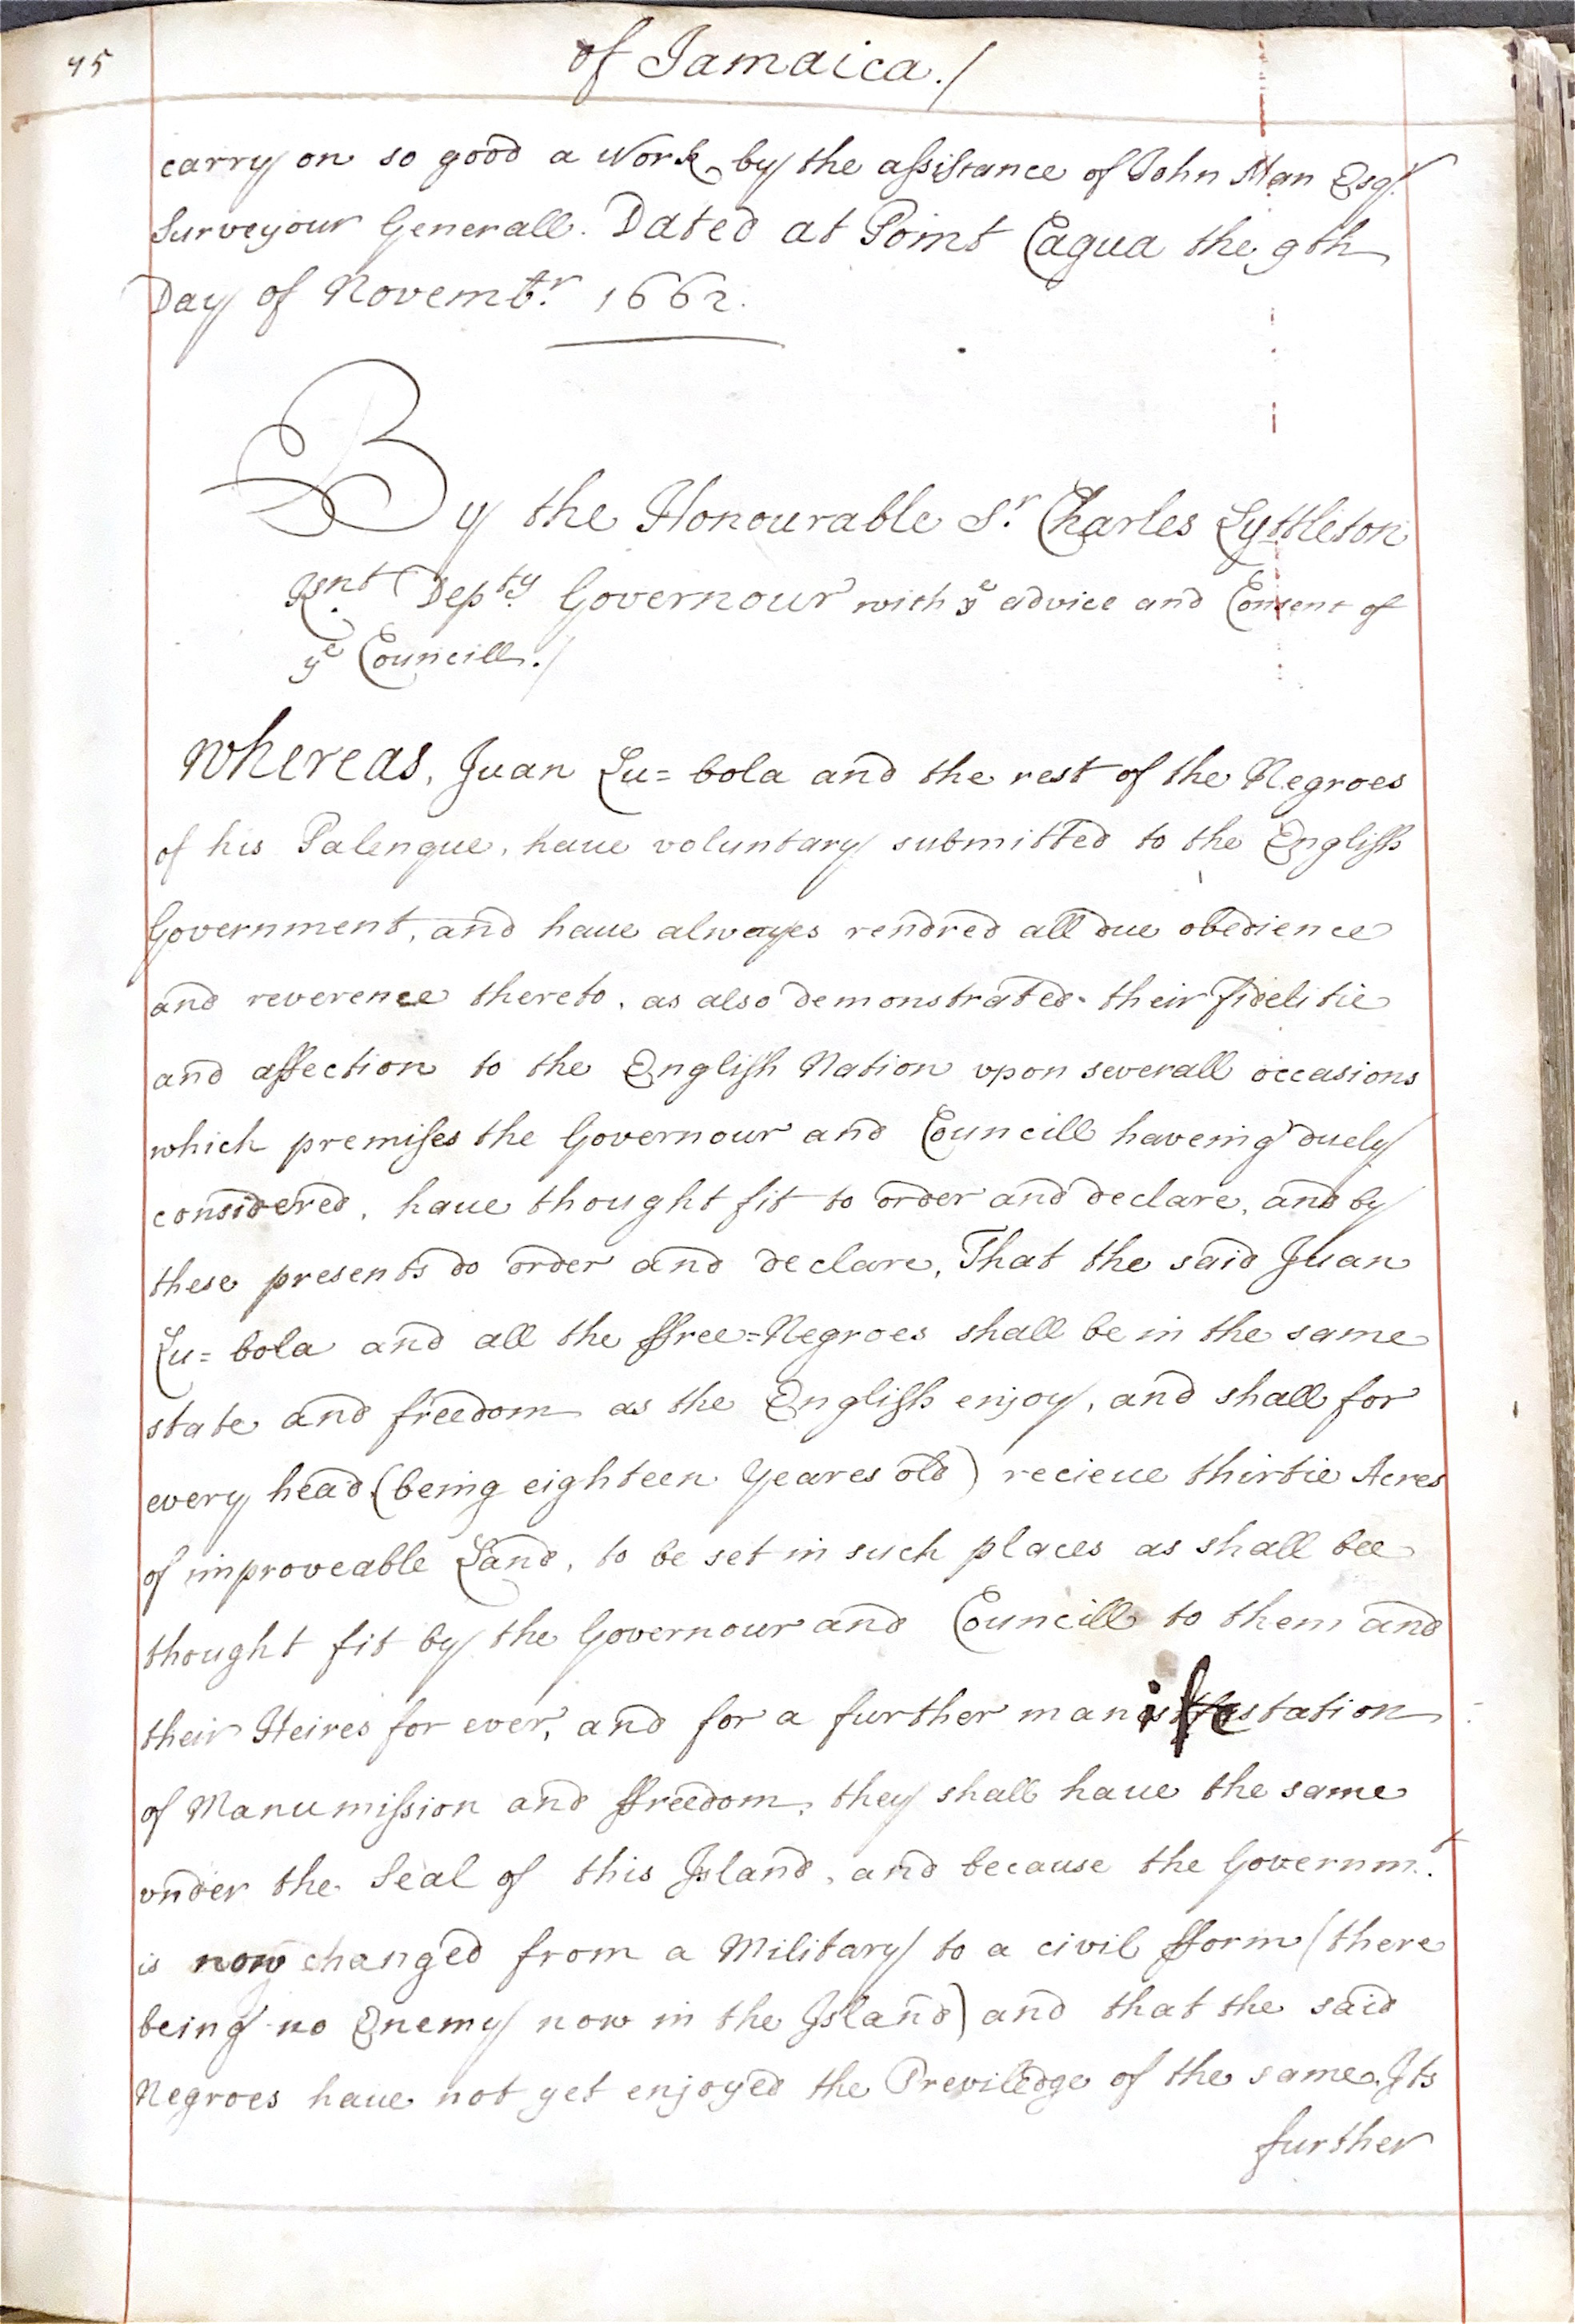 45
of Jamaica./
carry on so good a Work by the assistance of John Man Esqr.
Surveyour Generall. Dated at Point Cagua the 9th
Day of Novembr. 1662.
By the Honourable Sr. Charles Lyttleton
Knt Depty Governour with ye advice and Consent of
ye Councill./
Whereas, Juan Lu=bola and the rest of the Negroes
of his Palenque, haue voluntary submitted to the English
Government, and haue alwayes rendred all due obedience
and reverence thereto, as also demonstrated their fidelitie
and affection to the English Nation vpon severall occasions
which premises the Governour and Councill haveing duely
considered, haue thought fit to order and declare, and by
these presents do order and declare, That the said Juan
Lu=bola and all the ffree=Negroes shall be in the same
state and freedom as the English enjoy, and shall for
every head (being eighteen Yeares old) recieue thirtie Acres
of improveable Land, to be set in such places as shall bee
thought fit by the Governour and Councill to them and
their Heires for ever, and for a further manifestation
of Manumission and ffreedom, they shall haue the same
vnder the Seal of this Island, and because the Governmt.
is now changed from a Military to a civil fform (there
being no Enemy now in the Island) and that the said
Negroes haue not yet enjoyed the Previledge of the same, Its
further